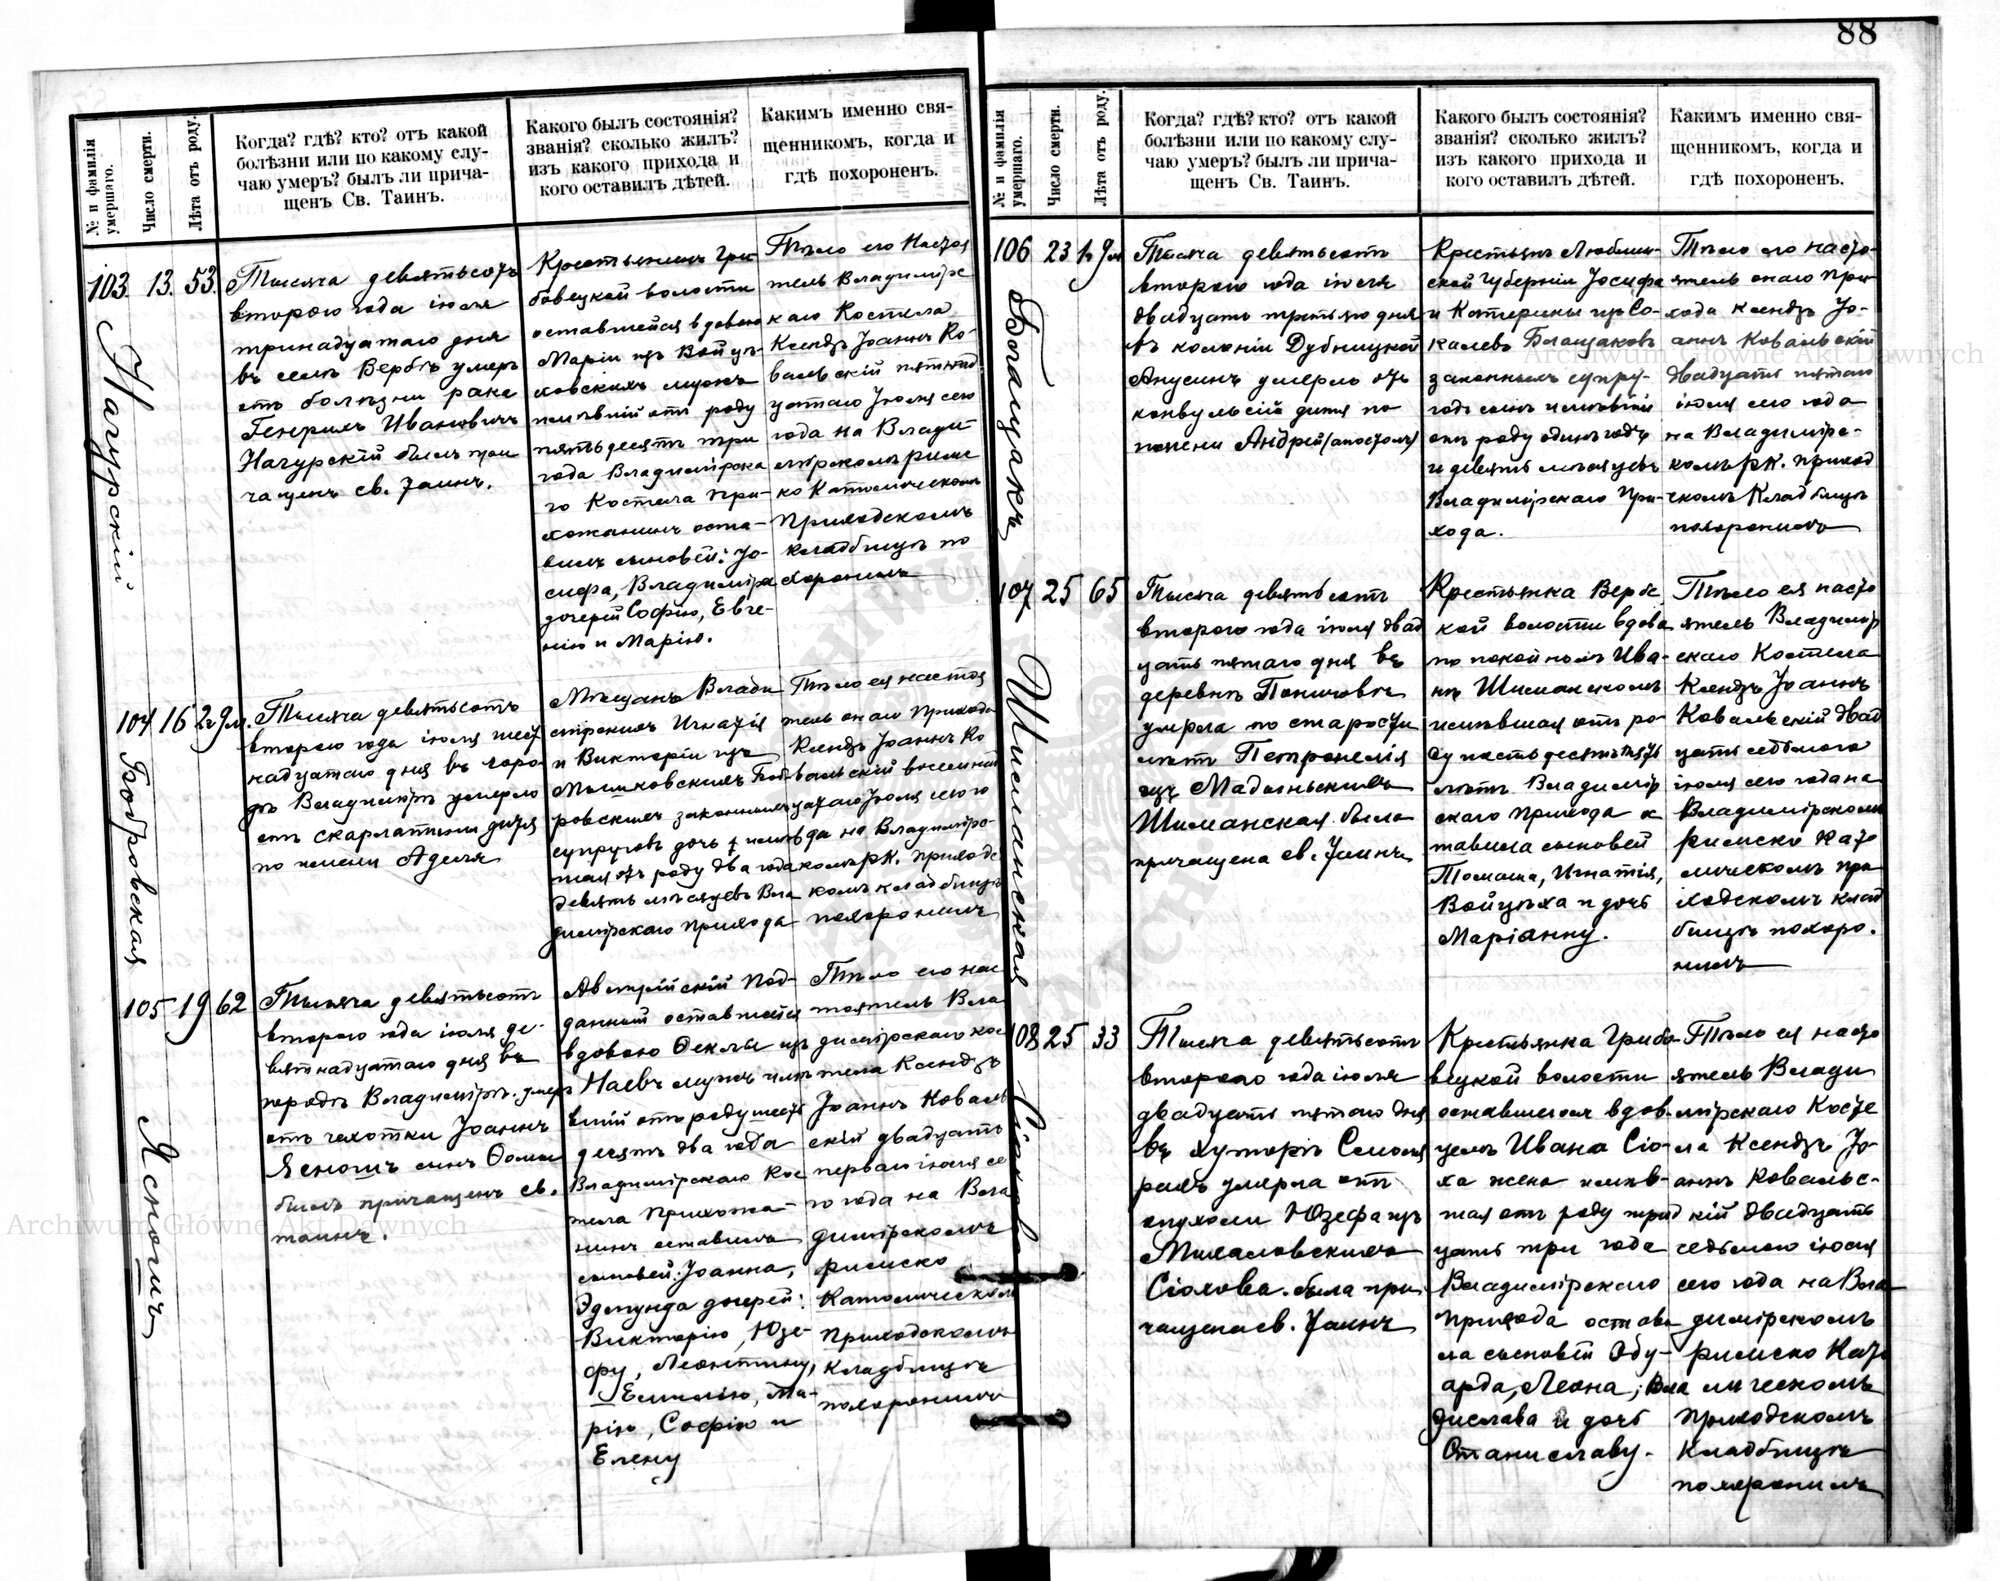 88
№ и фамилія умершаго.
Число смерти.
Лѣта отъ роду.
Когда? гдѣ? кто? отъ какой
болѣзни или по какому слу-
чаю умеръ? былъ ли прича-
щенъ Св. Таинъ.
Какого былъ состоянія?
званія? сколько жилъ?
изъ какого прихода и
кого оставилъ дѣтей.
Какимъ именно свя-
щенникомъ, когда и
гдѣ похороненъ.
103. 13. 53.
Нагурскій
Тысяча девятьсотъ
второго года іюля
тринадцатаго дня
въ селѣ Вербѣ умеръ
отъ болѣзни рака
Генрихъ Ивановичъ
Нагурскій былъ при
чащенъ св. Таинъ.
Крестьянинъ Гри
бовецкой волости
оставшейся вдовою
Маріи изъ Войцѣ-
ховскихъ мужъ
имѣвшій отъ роду
пятьдесятъ три
года Владимірска
го Костела при-
хожанинъ оста-
вилъ сыновей: Іо-
сифа, Владиміра
дочерей Софію, Евге-
нію и Марію.
Тѣло его Настоя
тель Владимірс
каго Костела
Ксендзъ Іоаннъ Ко-
вальскій пятнад
цатаго Іюля сего
года на Влади-
мірскомъ римс
ко Католическомъ
Приходскомъ
кладбищѣ по
хоронилъ
104 16 2г 9м.
Бобровская
Тысяча девятьсотъ
второго года іюля шест
надцатаго дня въ горо-
дѣ Владимірѣ умерло
отъ скарлатины дитя
по имени Аделя
Мѣщанъ Влади
мірскихъ Игнатія
и Викторіи изъ
Машковскихъ Боб-
ровскихъ законныхъ
супруговъ дочь имѣв
шая отъ роду два года
девять мѣсяцевъ Вла
димірскаго прихода
Тѣло ея настоя
тель онаго Прихода
Ксендзъ Іоаннъ Ко
вальскій восемнад
цатаго Іюля сего го
да на Владимірс-
комъ рк. приходс
комъ кладбищѣ
похоронилъ
105 19 62
Ясногъ
Тысяча девятьсотъ
второго года іюля де-
вятнадцатаго дня въ
городѣ Владимірѣ умеръ
отъ чахотки Іоаннъ
сынъ Ѳомы
былъ причащенъ св.
таинъ.
Австрійскій под-
данный оставшейся
вдовою Ѳеклы изъ
мужъ имѣ
вшій отъ роду шесть
десятъ два года
Владимірскаго Кос
тела Прихожа-
нинъ оставилъ
сыновей: Іоанна,
Эдмунда дочерей:
Викторію, Юзе-
фу, Леонтину,
Емилію, Ма-
рію, Софію и
Елену
Тѣло его нас
тоятель Вла
димірскаго кос
тела Ксендзъ
Іоаннъ Коваль
скій двадцать
перваго іюля се
го года на Вла
димірскомъ
римско
Католическомъ
Приходскомъ
Кладбищѣ
похоронилъ
№ и фамилія умершаго.
Число смерти.
Лѣта отъ роду.
Когда? гдѣ? кто? отъ какой
болѣзни или по какому слу-
чаю умеръ? былъ ли прича-
щенъ Св. Таинъ.
Какого былъ состоянія?
званія? сколько жилъ?
изъ какого прихода и
кого оставилъ дѣтей.
Какимъ именно свя-
щенникомъ, когда и
гдѣ похороненъ.
106 23 1г 9м
Тысяча девятьсотъ
второго года іюля
двадцать третьяго дня
въ колоніи Дубницкой
Анусинъ умерло отъ
конвульсій дитя по
имени Андрей (апостолъ)
Крестьянъ Люблин-
ской Губерніи Іосифа
и Катерины изъ Со-
законныхъ супру-
говъ сынъ имѣвшій
отъ роду одинъ годъ
и девять мѣсяцевъ
Владимірскаго При-
хода.
Тѣло его насто-
ятель онаго При-
хода Ксендзъ Іо-
аннъ Ковальскій
двадцать пятаго
іюля сего года
на Владимірс-
комъ рк. приход
скомъ Кладбищѣ
похоронилъ
107 25 65
Шиманская
Тысяча девятьсотъ
второго года іюля двад
цать пятаго дня въ
деревнѣ Поничовкѣ
умерла по старости
лѣтъ Петронелія
изъ
Шиманская была
причащена св. Таинъ
Крестьянка Вербс
кой волости вдова
по покойномъ Ива-
нѣ Шиманскомъ
имѣвшая отъ ро-
ду шестьдесятъ пять
лѣтъ Владимір
скаго Прихода ос
тавила сыновей
Томаша, Игнатія,
Войцѣха и дочь
Маріанну.
Тѣло ея насто
ятель Владимір
скаго Костела
Ксендзъ Іоаннъ
Ковальскій двад
цать седьмого
іюля сего года на
Владимірскомъ
римско Като
лическомъ при
ходскомъ клад
бищѣ похоро-
нилъ
108 25 33
Сіохова
Тысяча девятьсотъ
второго года іюля
двадцать пятаго дня
въ хуторѣ
умерла отъ
опухоли Юзефа изъ
Михаловскихъ
Сіохова. была при
чащена св. Таинъ
Крестьянка Грибо-
вецкой волости
оставшегося вдов-
цемъ Ивана Сіо-
ха жена имѣв-
шая отъ роду трид
цать три года
Владимірскаго
Прихода остави
ла сыновей Эду-
арда, Леона, Вла
дислава и дочь
Станиславу.
Тѣло ея насто
ятель Влади
мірскаго Косте
ла Ксендзъ Іо-
аннъ Ковальс-
кій двадцать
седьмого іюля
сего года на Вла
димірскомъ
римско Като
лическомъ
Приходскомъ
Кладбищѣ
похоронилъ
Archiwum Główne Akt Dawnych
Archiwum Główne Akt Dawnych